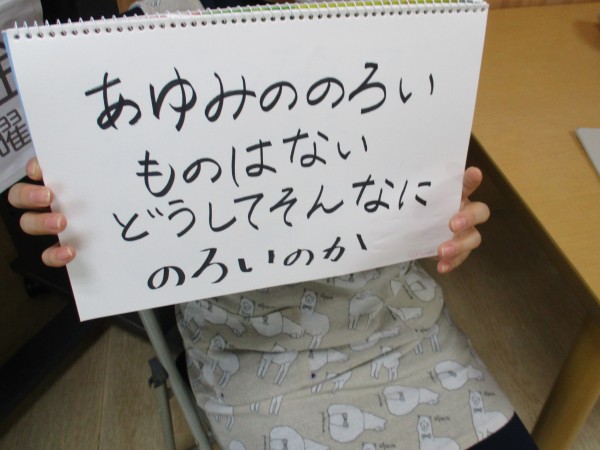 あゆみののろい
ものはない
どうしてそんなに
のろいのか
曜
alpaca